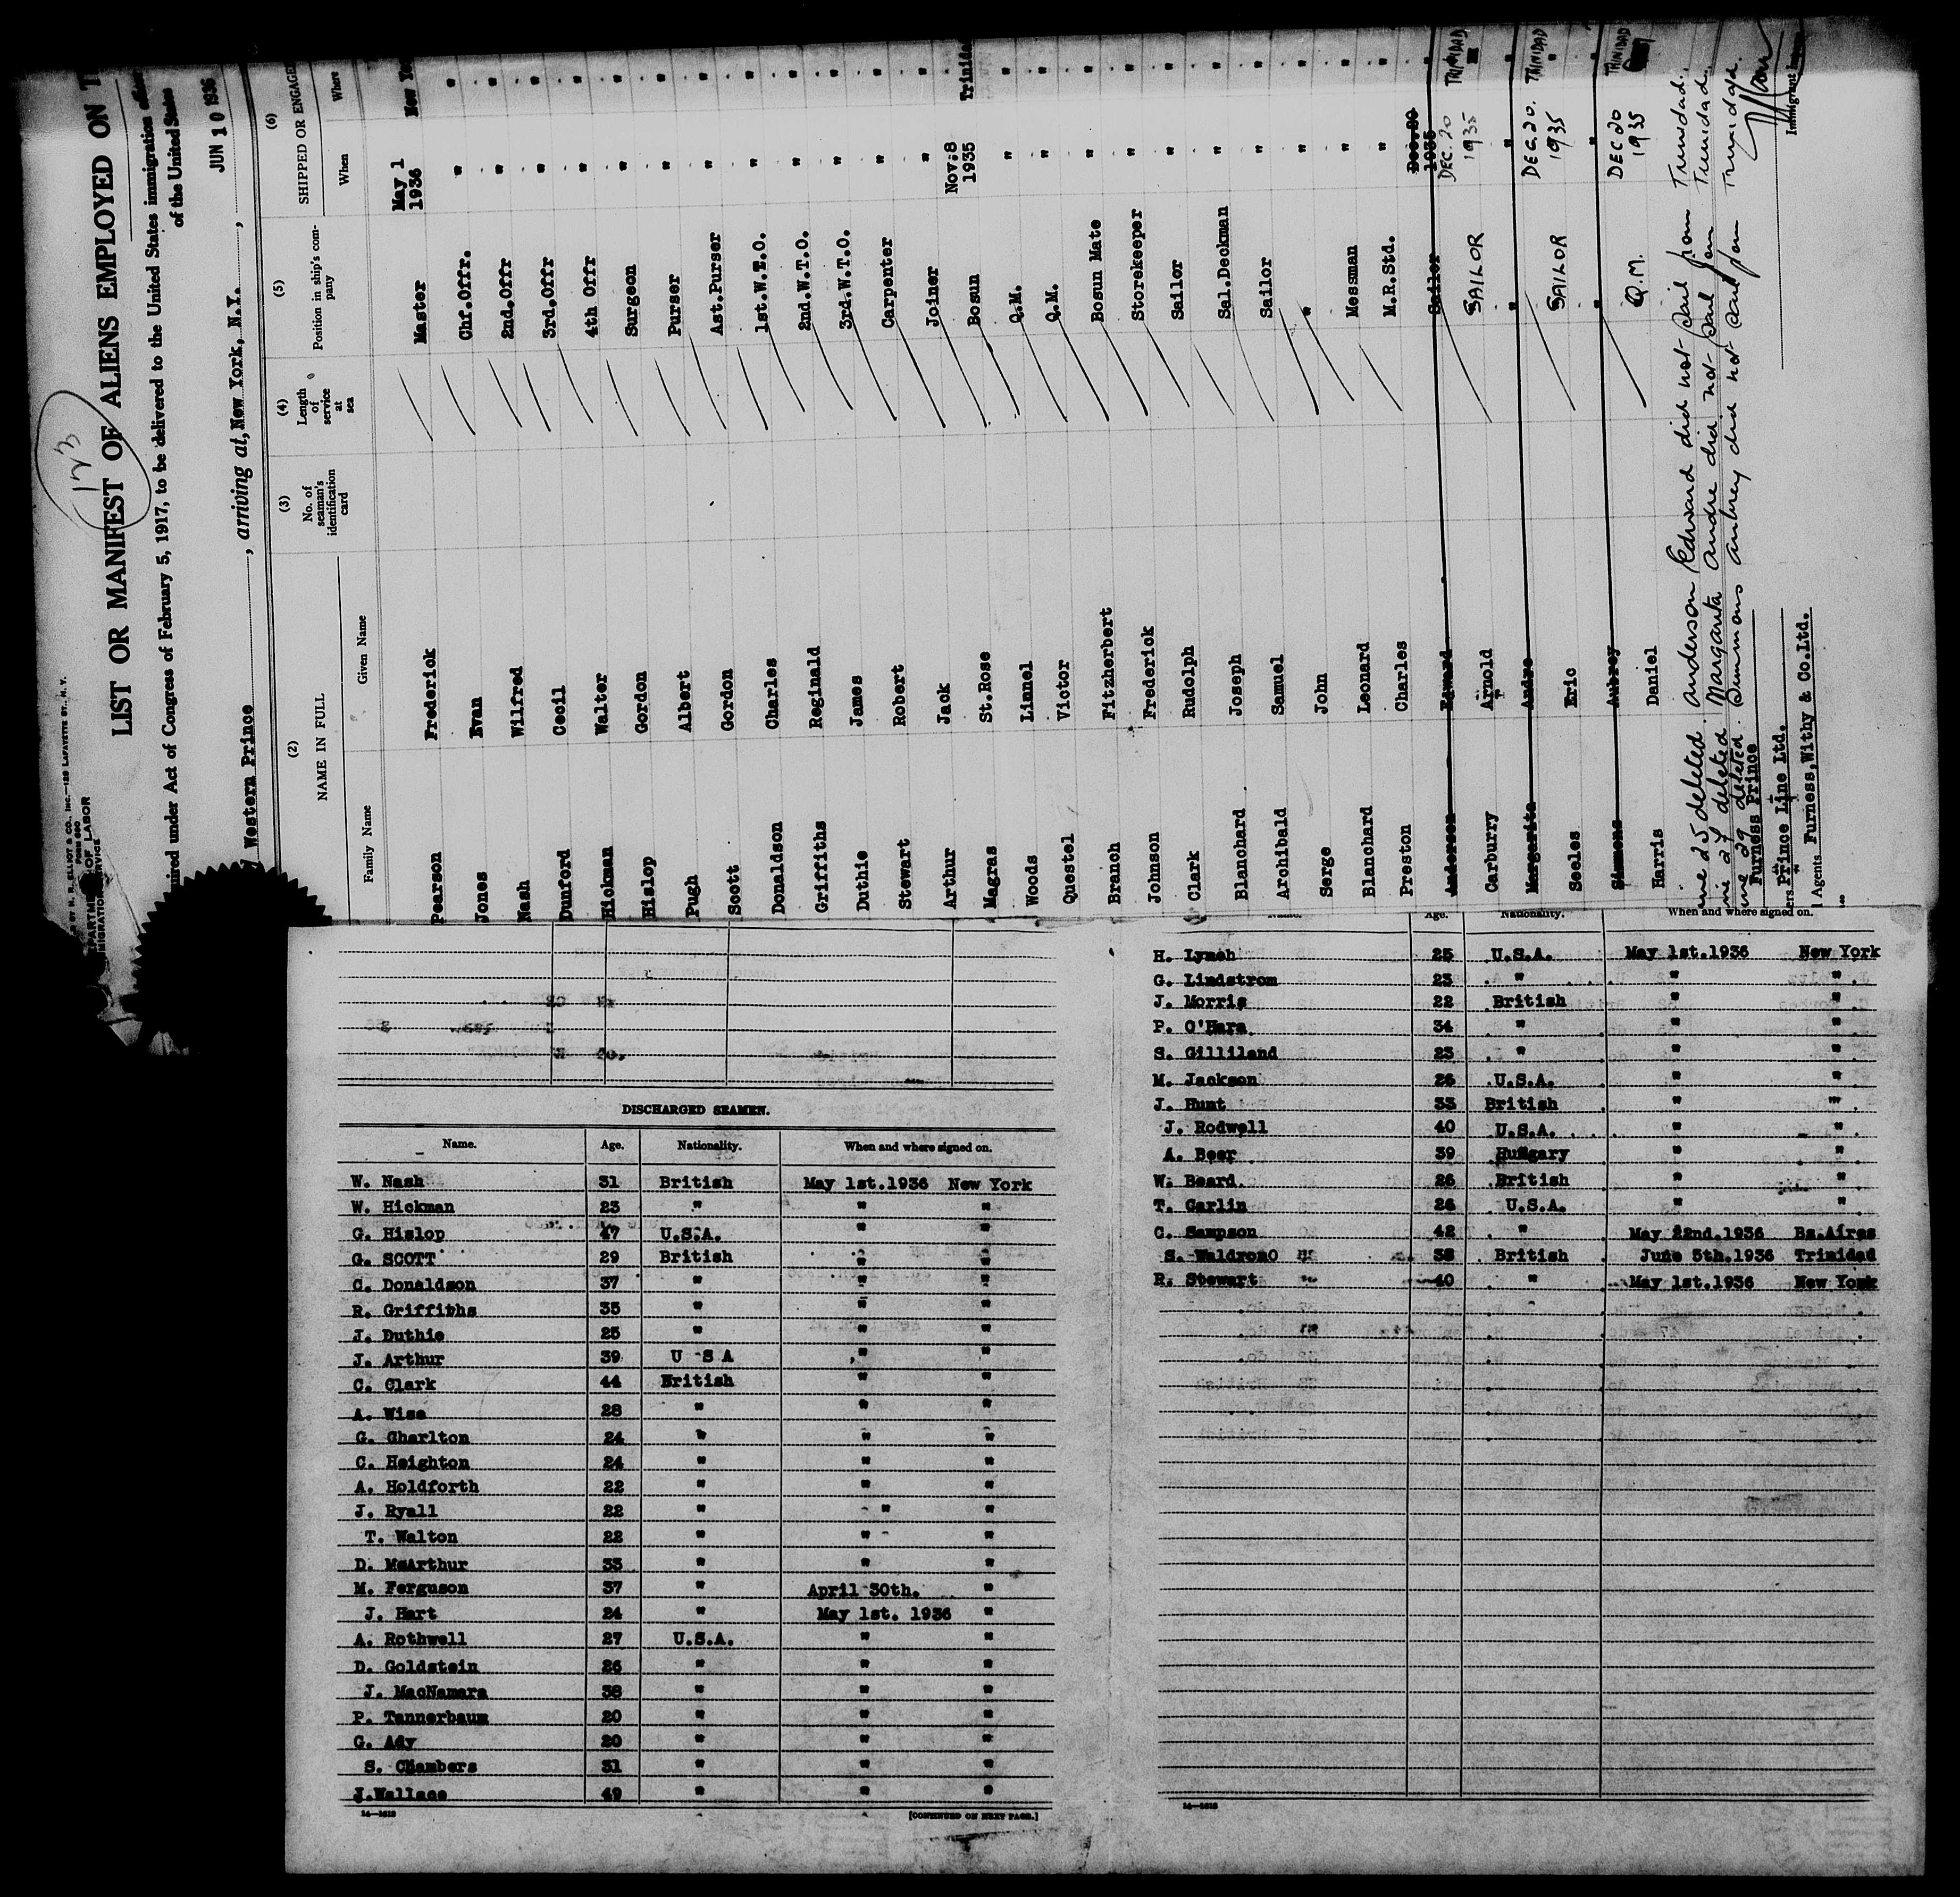 123
BY H. R. ELLIOT & CO., INC.—129 LAFAYETTE ST., N. Y.
Form 680
OF LABOR
LIST OR MANIFEST OF ALIENS EMPLOYED ON
under Act of Congress of February 5, 1917, to be delivered to the United States immigration
of the United States
Western Prince , arriving at, New York, N.Y. , JUN 10 1936
(2) (3) (4) (5) (6)
NAME IN FULL No. of seaman's identification card Length of service at sea Position in ship's company SHIPPED OR ENGAGED
Family Name Given Name When Where
Pearson Frederick Master May 1 1936 New Yo
Jones Evan Chf.Offr. " "
Nash Wilfred 2nd.Offr " "
Dunford Cecil 3rd.Offr " "
Hickman Walter 4th Offr " "
Hislop Gordon Surgeon " "
Pugh Albert Purser " "
Scott Gordon Ast.Purser " "
Donaldson Charles 1st.W.T.O. " "
Griffiths Reginald 2nd.W.T.O. " "
Duthie James 3rd.W.T.O. " "
Stewart Robert Carpenter " "
Arthur Jack Joiner " "
Magras St.Rose Bosun Nov.8 1935 Trinidad
Woods Linnel Q.M. " "
Questel Victor Q.M. " "
Branch Fitzherbert Bosun Mate " "
Johnson Frederick Storekeeper " "
Clark Rudolph Sailor " "
Blanchard Joseph Sal.Deckman " "
Archibald Samuel Sailor " "
Serge John " " "
Blanchard Leonard Messman " "
Preston Charles M.R.Std. " "
Anderson Edward Sailor Dec.20 1935 "
Carburry Arnold SAILOR DEC. 20 1935 TRINIDAD
Margarita Andre " " "
Seeles Eric SAILOR DEC. 20. 1935 TRINIDAD
Simmons Aubrey " " "
Harris Daniel Q.M. DEC 20 1935 TRINIDAD
line 25 deleted. Anderson Edward did not sail from Trinidad.
line 27 deleted Margarita Andre did not sail from Trinidad.
line 29 deleted. Simmons Aubrey did not sail from Trinidad.
Furness Prince
Prince Line Ltd.
Agents Furness,Withy & Co.Ltd.
Immigrant
DISCHARGED SEAMEN.
Name. Age. Nationality. When and where signed on.
W. Nash 31 British May 1st.1936 New York
W. Hickman 23 " " "
G. Hislop 47 U.S.A. " "
G. SCOTT 29 British " "
C. Donaldson 37 " " "
R. Griffiths 35 " " "
J. Duthie 25 " " "
J. Arthur 39 U S A " "
C. Clark 44 British " "
A. Wise 28 " " "
G. Charlton 24 " " "
C. Heighton 24 " " "
A. Holdforth 22 " " "
J. Ryall 22 " " "
T. Walton 22 " " "
D. McArthur 33 " " "
M. Ferguson 37 " April 30th. "
J. Hart 24 " May 1st. 1936 "
A. Rothwell 27 U.S.A. " "
D. Goldstein 26 " " "
J. MacNamara 38 " " "
P. Tannerbaum 20 " " "
G. Ady 20 " " "
S. Chambers 31 " " "
J.Wallace 49 " " "
14—1613 [CONTINUED ON NEXT PAGE.]
Age. Nationality. When and where signed on.
H. Lynch 25 U.S.A. May 1st.1936 New York
G. Lindstrom 23 " " "
J. Morris 22 British " "
P. O'Hara 34 " " "
S. Gilliland 23 " " "
M. Jackson 26 U.S.A. " "
J. Hunt 33 British " "
J. Rodwell 40 U.S.A. " "
A. Beer 39 Hungary " "
W. Beard 26 British " "
T. Garlin 26 U.S.A. " "
C. Sampson 42 " May 22nd.1936 Bs.Aires
S. Waldron 38 British June 5th.1936 Trinidad
R. Stewart 40 " May 1st.1936 New York
14—1613